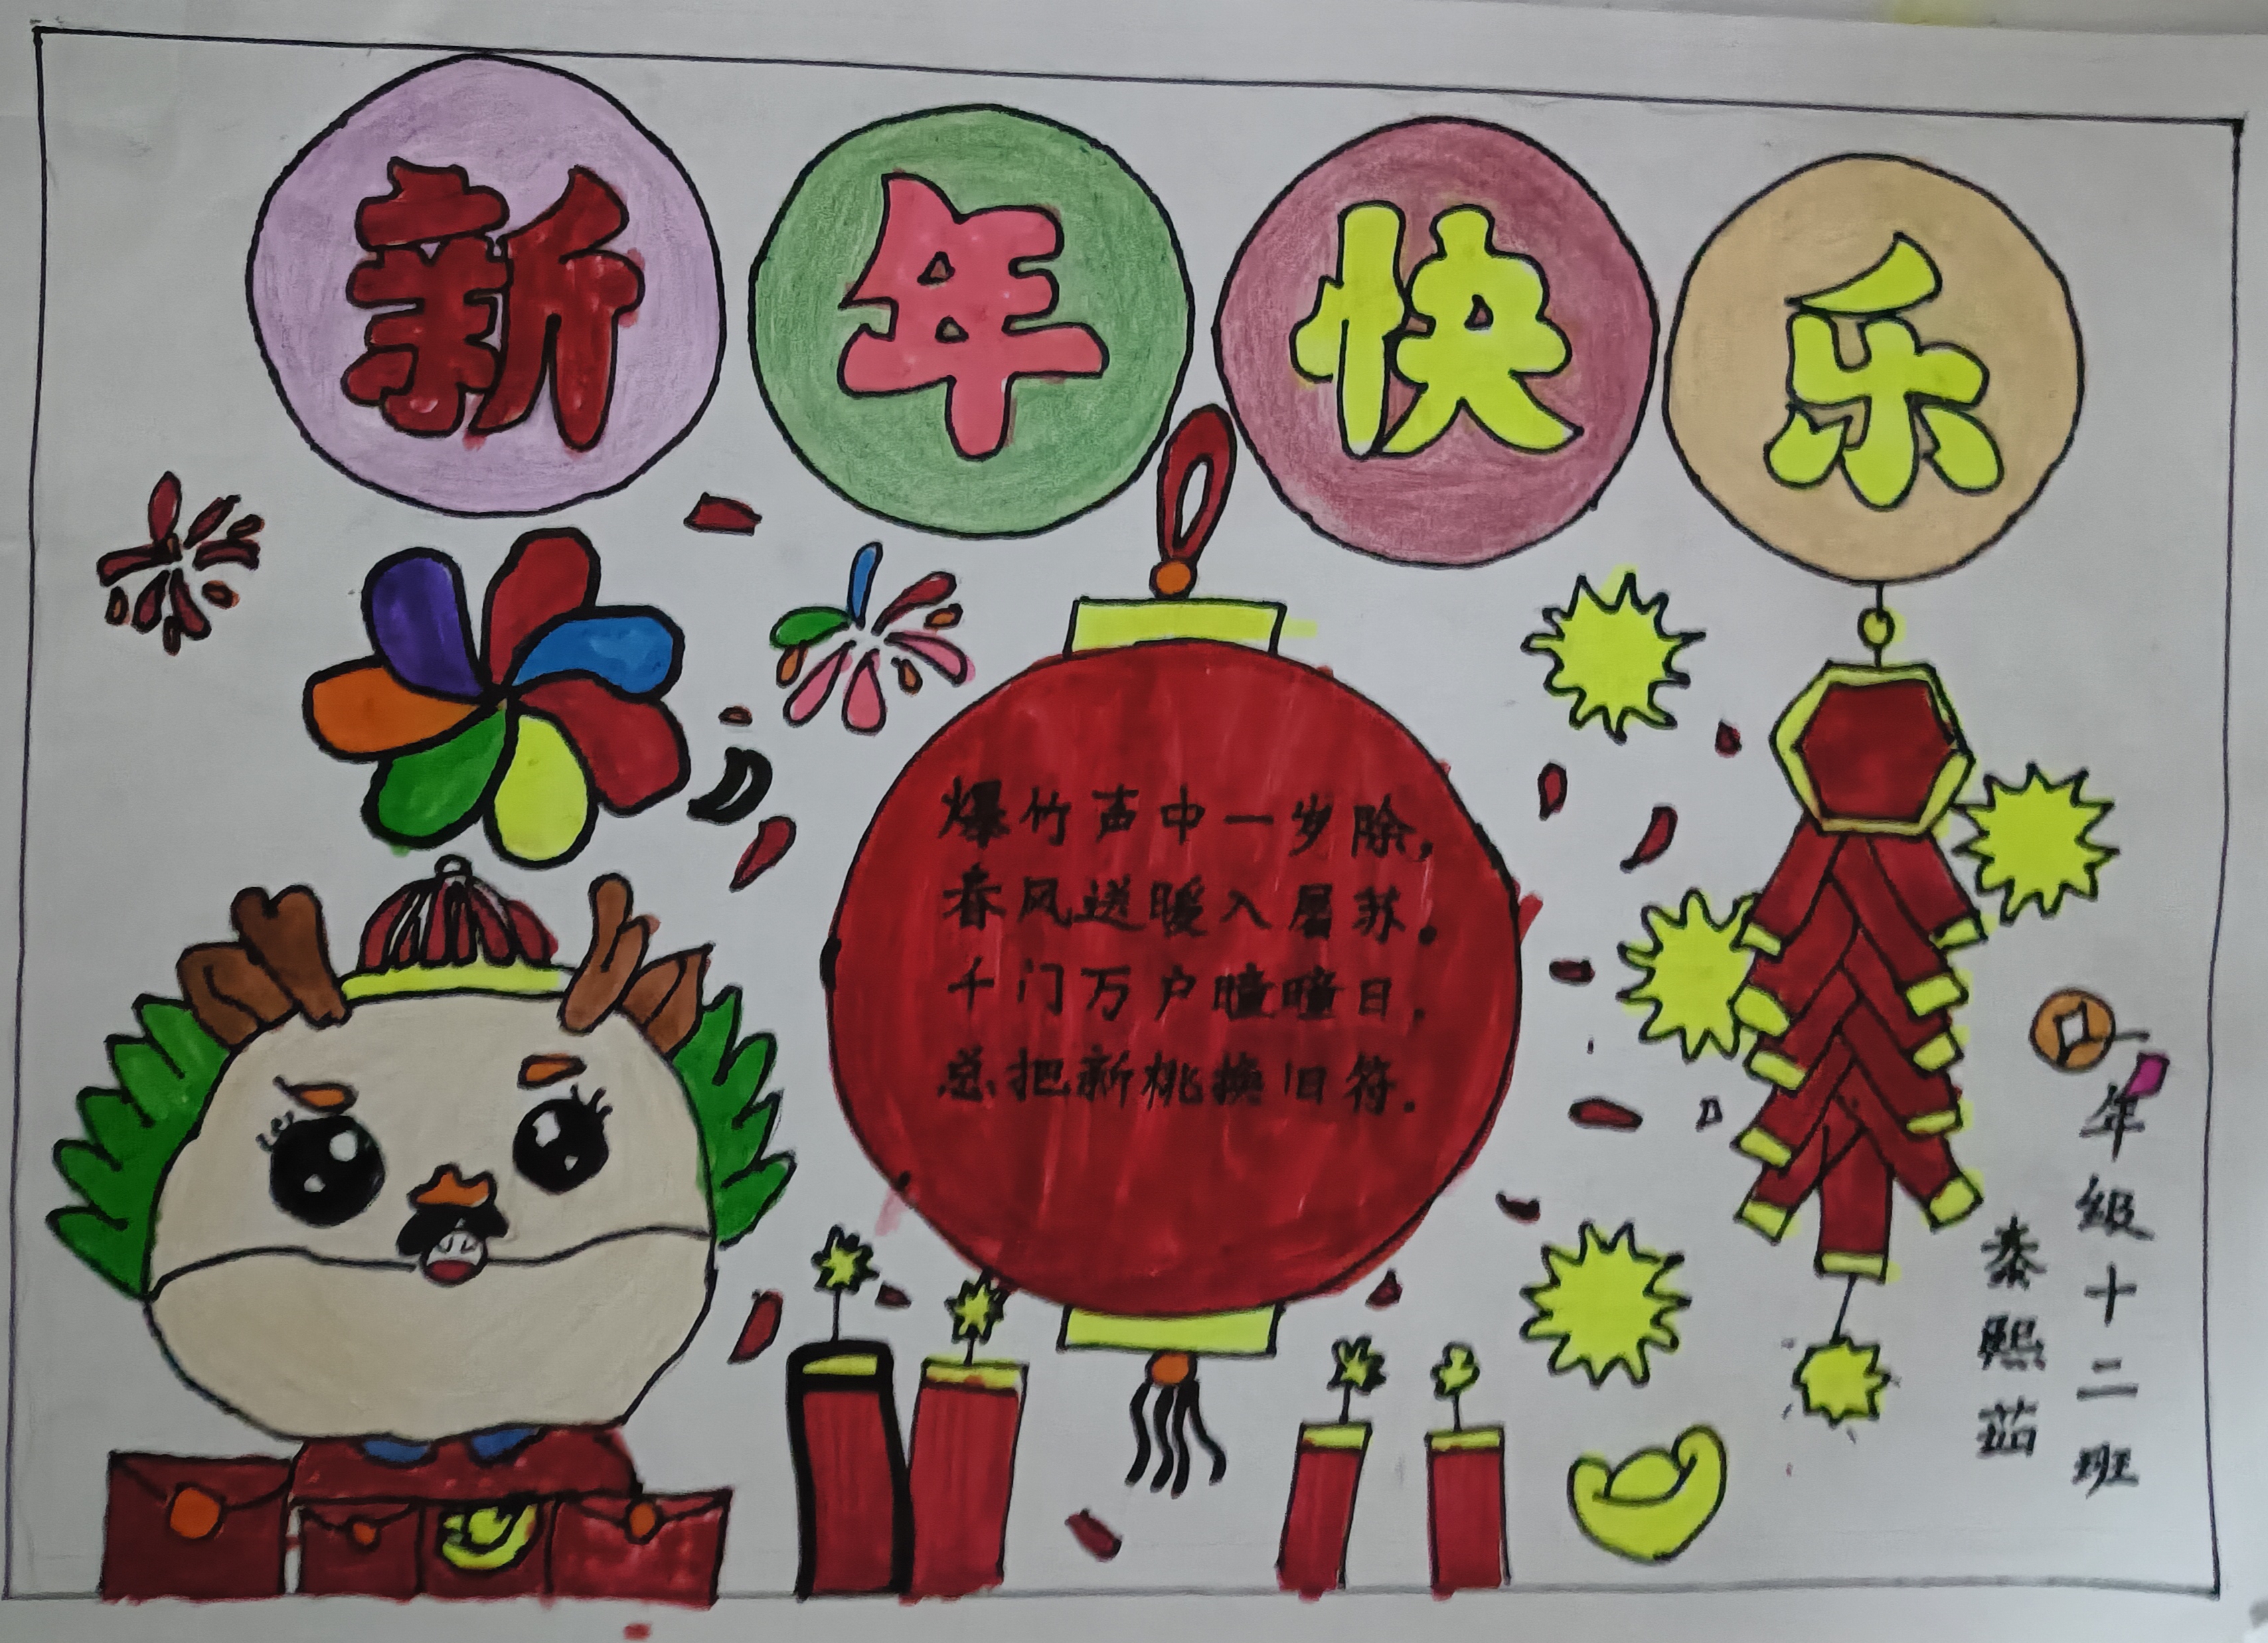 新年快乐
爆竹声中一岁除,
春风送暖入屠苏.
千门万户曈曈日,
总把新桃换旧符.
一年级十二班
秦熙茹